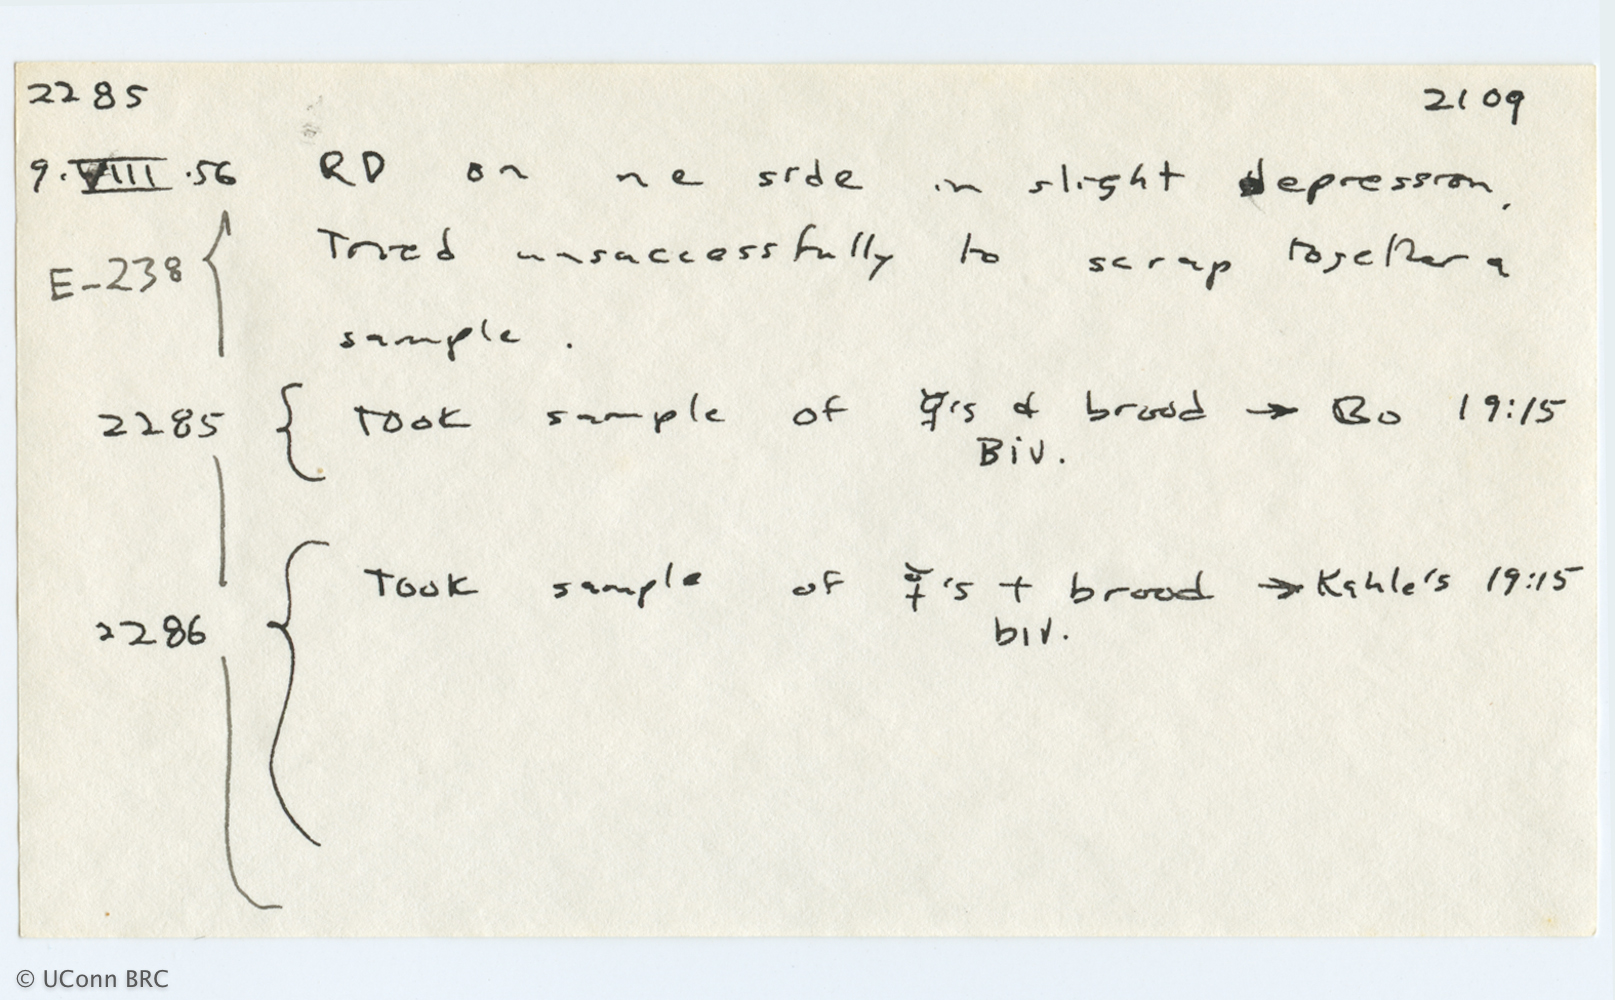 2285 2109
9.VIII.56 RD on ne side in slight depression.
E-238 Tried unsuccessfully to scrap together a
sample.
2285 { Took sample of ☿'s & brood → Bo 19:15
Biv.
2286 { Took sample of ☿'s + brood → Kahle's 19:15
biv.
© UConn BRC